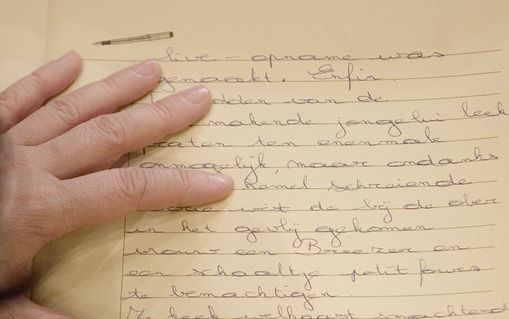 live-opname was
gemaakt. Enfin.
van de
makende jongelui leek
praten ten enenmale
onmogelijk, maar ondanks
kamel schreiende
wist de bij de ober
in het gevlij gekomen
vrouw een Breezer en
een schaaltje petit fours
te bemachtigen.
Ze keek welhaast smachtend